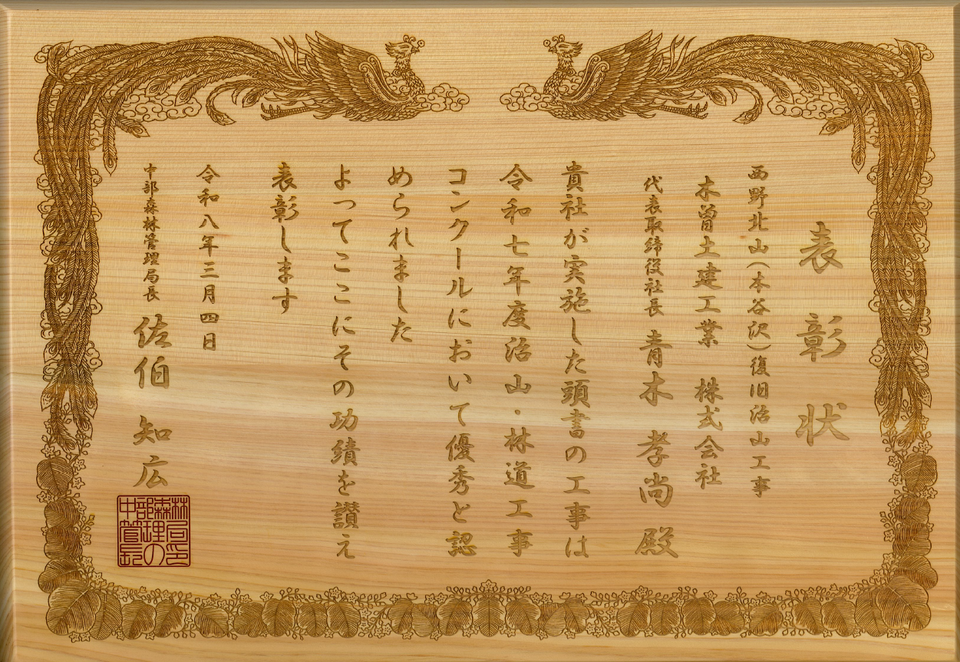 表彰状
西野北山（本谷沢）復旧治山工事
木曽土建工業 株式会社
代表取締役社長 青木 孝尚 殿
貴社が実施した頭書の工事は
令和七年度治山・林道工事
コンクールにおいて優秀と認
められました
よってここにその功績を讃え
表彰します
令和八年三月四日
中部森林管理局長 佐伯 知広
中部森林管理局長の印